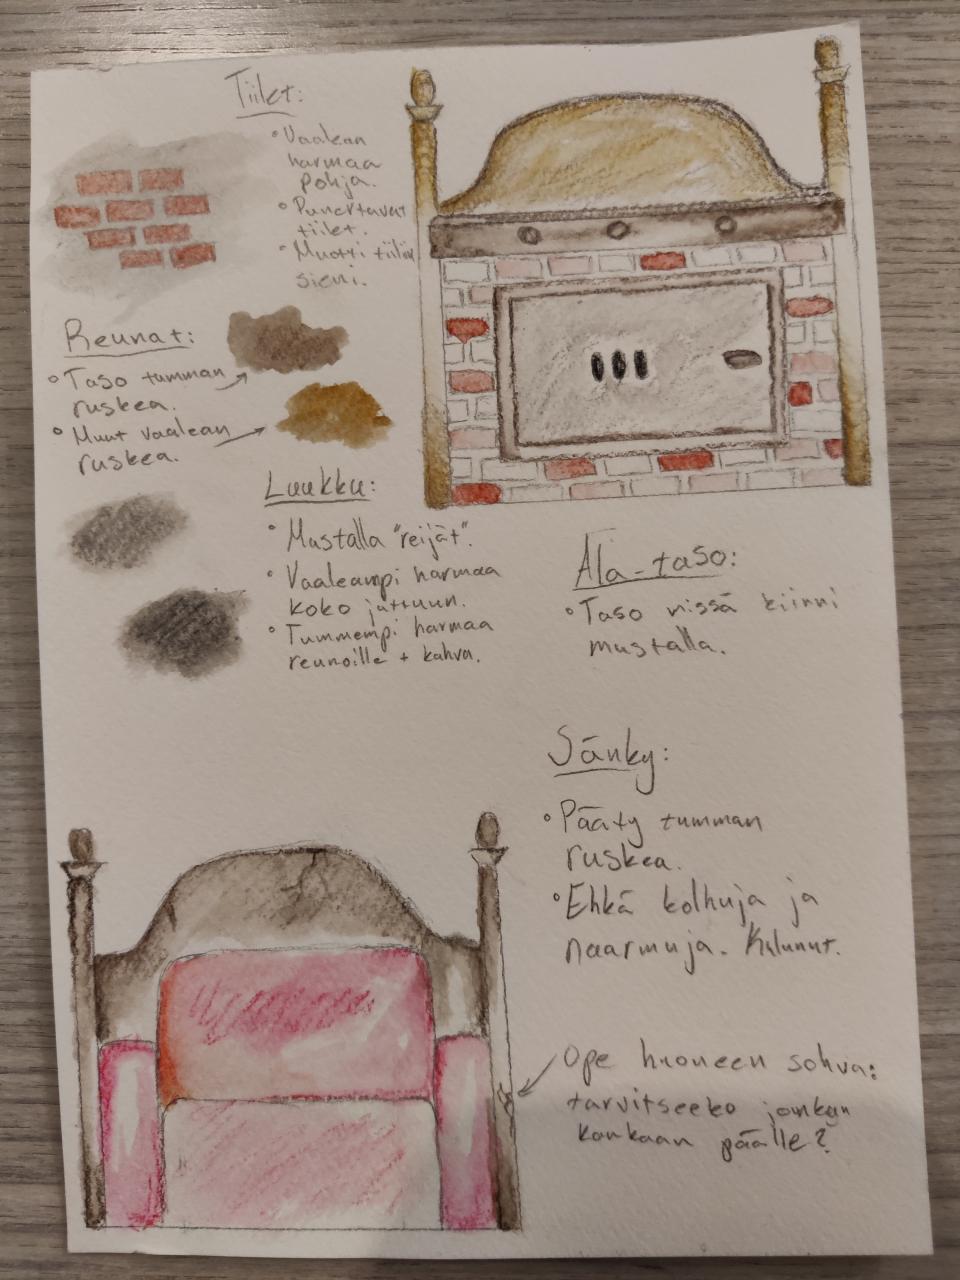 Tiilet:
• Vaalean
harmaa
pohja.
• Punertavat
tiilet.
• Muotti tiiliin
sieni.
Reunat:
• Taso tumman
ruskea.
• Muut vaalean
ruskea.
Luukku:
• Mustalla "reijät".
• Vaaleampi harmaa
koko juttuun.
• Tummempi harmaa
reunoille + kahva.
Ala-taso:
• Taso kiinni
mustalla.
Sänky:
• Pääty tumman
ruskea.
• Ehkä kolhuja ja
naarmuja. Kulunut.
Ope huoneen sohva:
tarvitseeko jonkun
kankaan päälle?